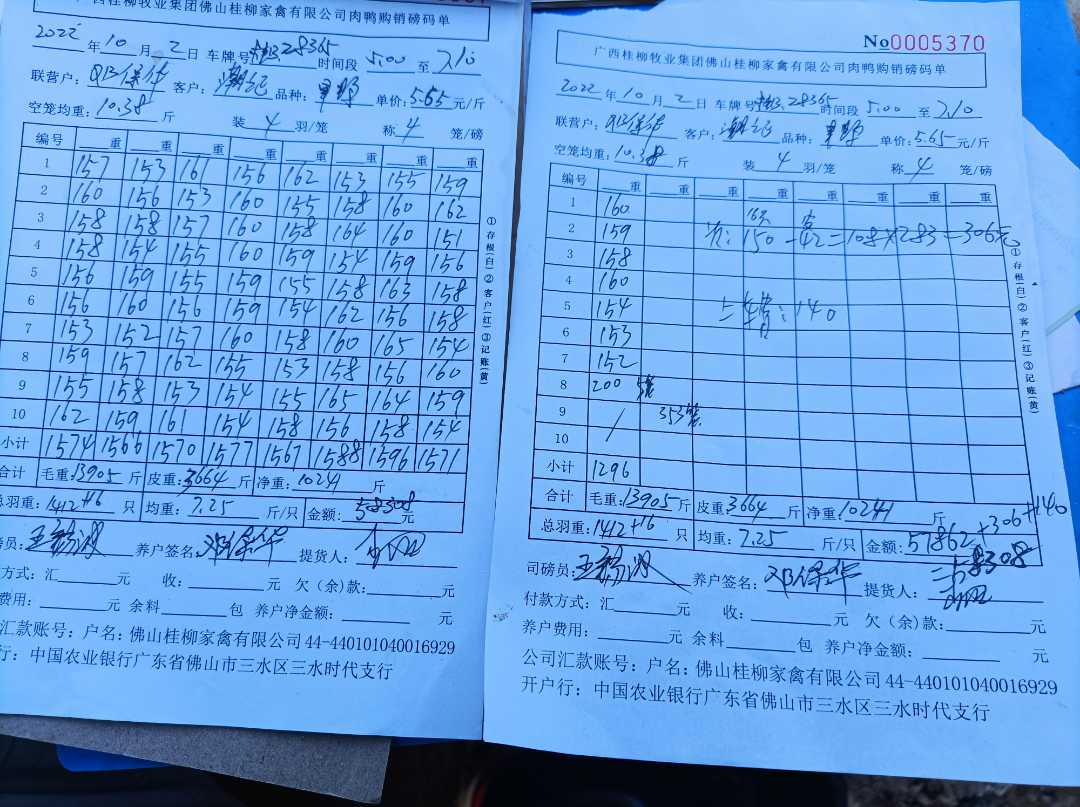 广西桂柳牧业集团佛山桂柳家禽有限公司肉鸭购销磅码单
2022年10月2日 车牌号 28365 时间段 5:00 至 7:10
联营户: 邓保华 客户: 品种: 单价:5.65元/斤
空笼均重:10.38斤 装4羽/笼 称4笼/磅
编号 重 重 重 重 重 重 重 重
1 157 153 161 156 162 153 155 159
2 160 156 153 160 155 158 160 162
3 158 158 157 160 158 164 160 151
4 158 154 155 160 159 154 159 156
5 156 159 155 159 155 158 163 158
6 156 160 156 159 154 162 156 158
7 153 152 157 160 158 160 165 154
8 159 157 162 155 153 158 156 160
9 155 158 153 154 155 165 164 159
10 162 159 161 154 158 156 158 154
小计 1574 1566 1570 1577 1567 1588 1596 1571
合计 毛重:13905斤 皮重:3664斤 净重:10241斤
总羽重:1412+16只 均重:7.25斤/只 金额:58308元
磅员: 养户签名:邓保华 提货人:
方式:汇 元 收: 元 欠(余)款: 元
费用: 元 余料 包 养户净金额: 元
汇款账号:户名:佛山桂柳家禽有限公司44-440101040016929
行:中国农业银行广东省佛山市三水区三水时代支行
①存根(白)②客户(红)③记账(黄)
No0005370
广西桂柳牧业集团佛山桂柳家禽有限公司肉鸭购销磅码单
2022年10月2日 车牌号 28365 时间段 5:00 至 7:10
联营户: 邓保华 客户: 品种: 单价:5.65元/斤
空笼均重:10.38斤 装4羽/笼 称4笼/磅
编号 重 重 重 重 重 重 重 重
1 160
16只
2 159 次:150-42=108×2.83=306元
3 158
4 160
5 154 :140
6 153
7 152
8 200 5笼
9 / 353笼
10 /
小计 1296
合计 毛重:13905斤 皮重3664斤 净重:10241斤
总羽重:1412+16只 均重:7.25斤/只 金额:57862+306+140
=58308
司磅员: 养户签名:邓保华 提货人:
付款方式:汇 元 收: 元 欠(余)款: 元
养户费用: 元 余料 包 养户净金额: 元
公司汇款账号:户名:佛山桂柳家禽有限公司44-440101040016929
开户行:中国农业银行广东省佛山市三水区三水时代支行
①存根(白)②客户(红)③记账(黄)